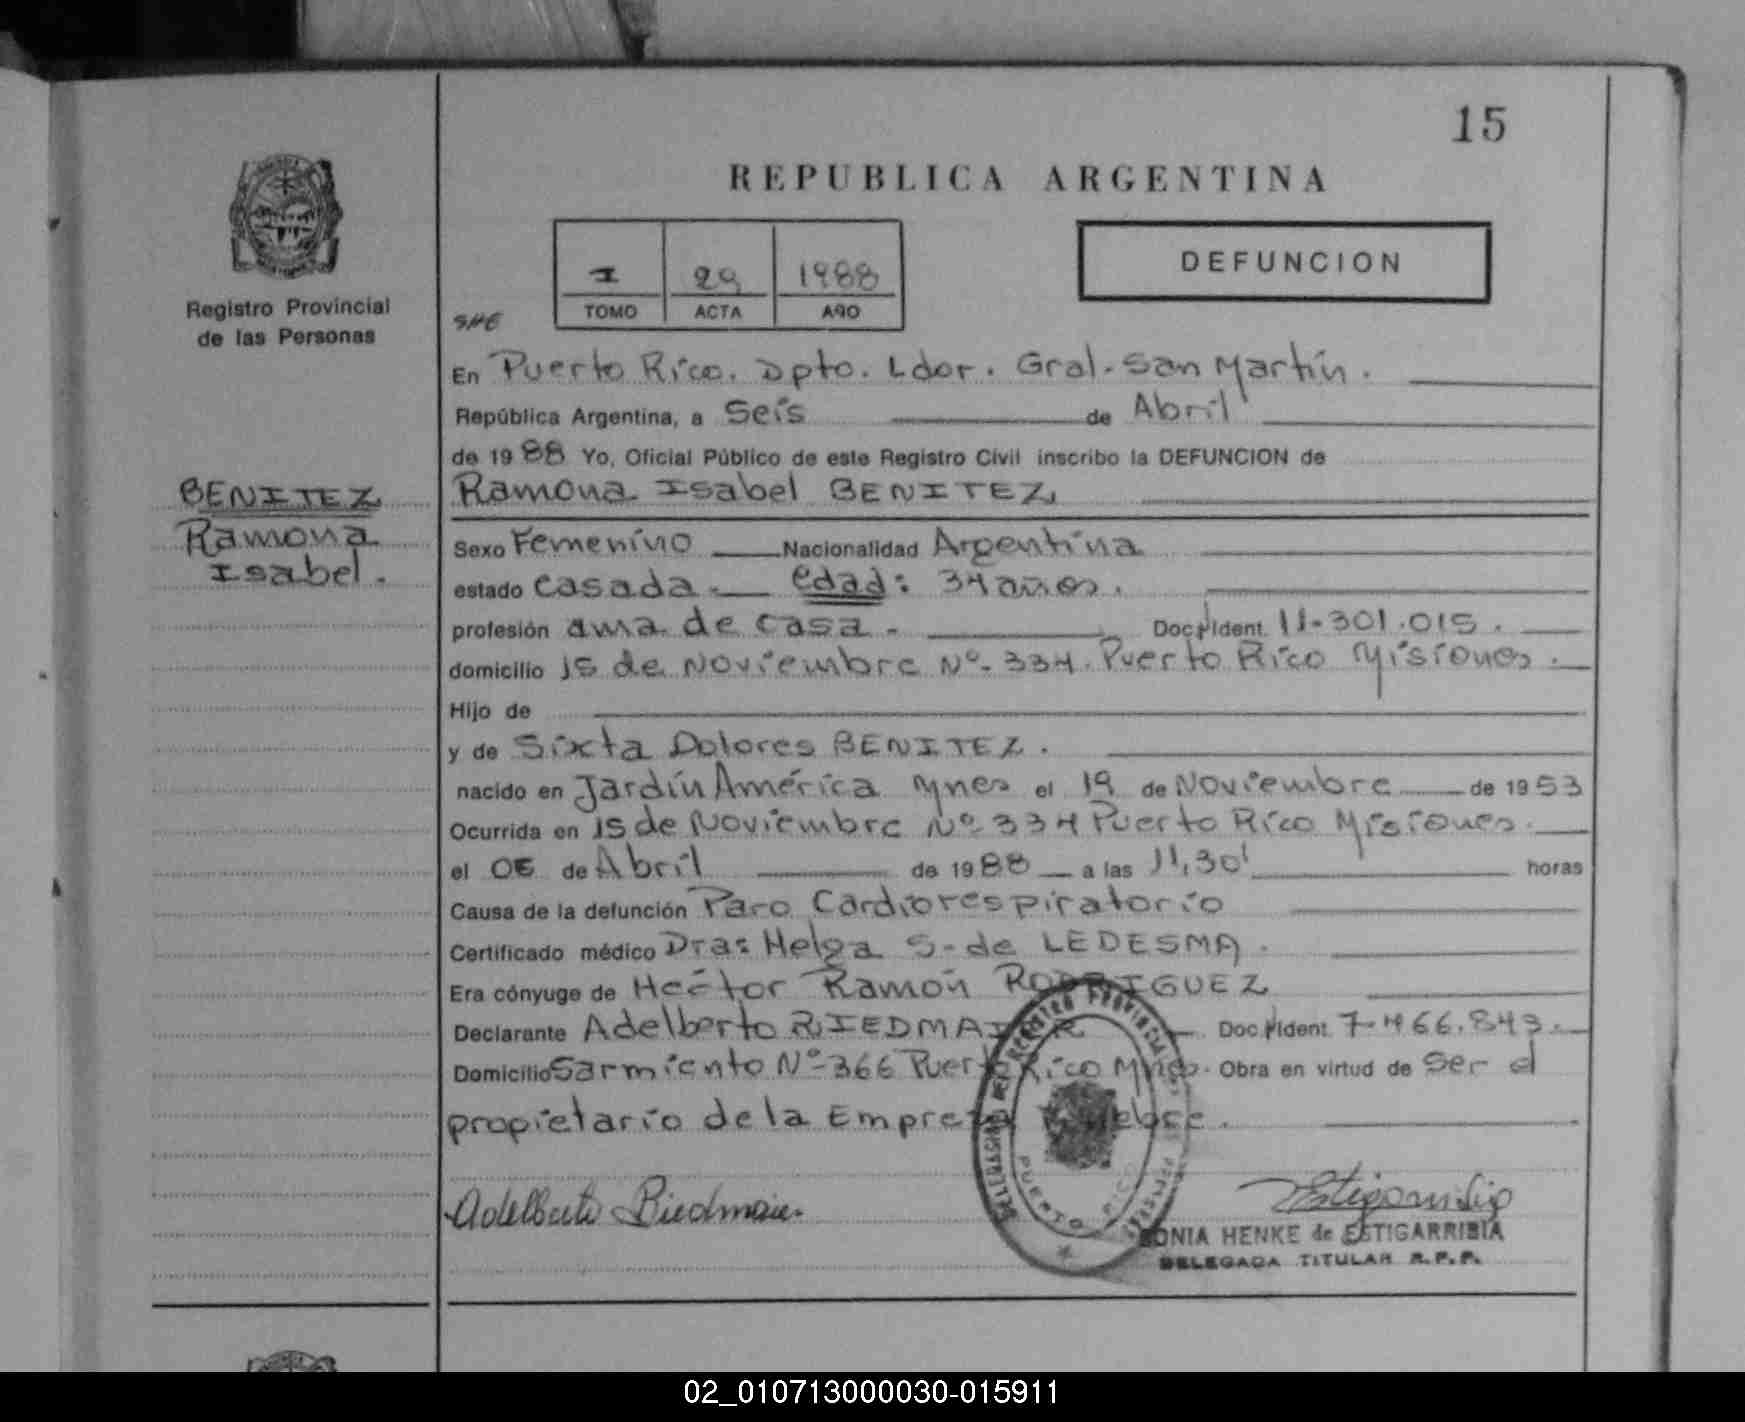 15
REPUBLICA ARGENTINA
I 29 1988
TOMO ACTA AÑO
DEFUNCION
Registro Provincial
de las Personas
SHE
En Puerto Rico. Dpto. Ldor. Gral. San Martín.
República Argentina, a Seis de Abril
de 1988 Yo, Oficial Público de este Registro Civil inscribo la DEFUNCION de
BENITEZ
Ramona
Isabel.
Ramona Isabel BENITEZ
Sexo Femenino Nacionalidad Argentina
estado casada. edad: 34 años.
profesión ama de casa. Doc. Ident. 11.301.015.
domicilio 15 de Noviembre Nº 334. Puerto Rico Misiones.
Hijo de
y de Sixta Dolores BENITEZ.
nacido en Jardín América Mnes el 19 de Noviembre de 1953
Ocurrida en 15 de Noviembre Nº 334 Puerto Rico Misiones.
el de Abril de 1988 a las 11,30' horas
Causa de la defunción Paro Cardiorespiratorio
Certificado médico Dra: Helga S. de LEDESMA.
Era cónyuge de Héctor Ramón RODRIGUEZ
Declarante Adelberto RIEDMAIER Doc. Ident. 7.466.843.
Domicilio Sarmiento Nº 366 Puerto Rico Mnes. Obra en virtud de ser el
propietario de la Empresa
DELEGACION DEL REGISTRO PROVINCIAL DE LAS PERSONAS
PUERTO RICO
Adelberto Riedmaier
SONIA HENKE de ESTIGARRIBIA
DELEGADA TITULAR R.P.P.
02_010713000030-015911